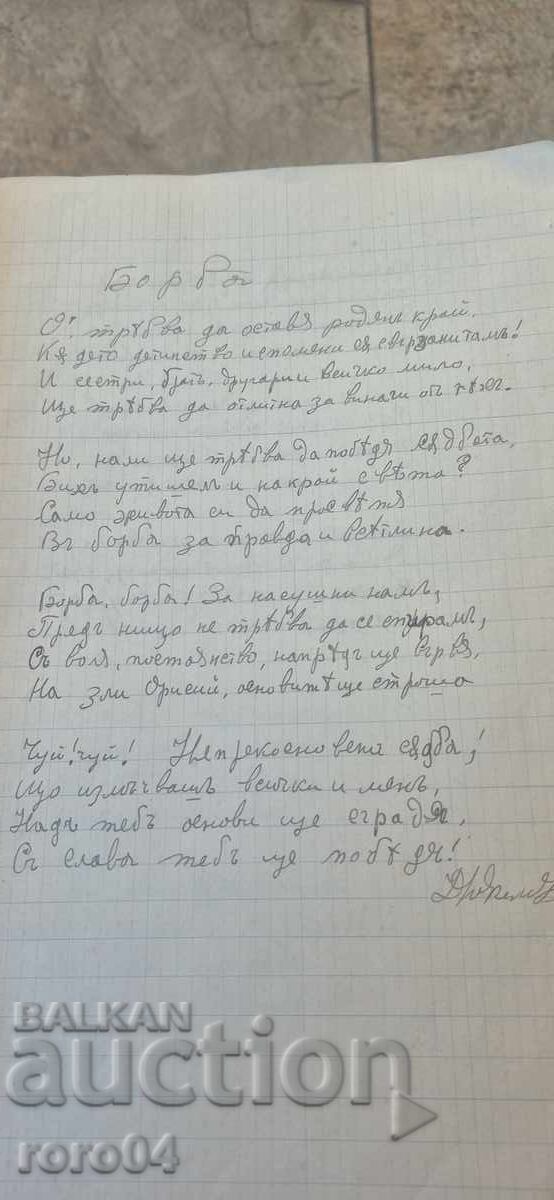 Борба
О! трѣбва да оставя родния край,
Кѫдето детинство и спомени сѫ свързани тамъ!
И сестри, братъ, другари и всичко мило,
Ще трѣбва да отлитна за винаги отъ
Но, нали ще трѣбва да побѣдя сѫдбата,
Бихъ утишелъ и на край свѣта?
Само живота си да просвѣтя
Въ борба за правда и свѣтлина.
Борба, борба! За насушни намъ,
Предъ нищо не трѣбва да се спирамъ,
Съ воля, постоянство, напрѣдъ ще вървя,
На зли орисий, основитѣ ще строша
Чуй! чуй! Неприкосновена сѫдба,!
Що измъчвашъ всички и менъ,
Надъ тебъ основи ще сградя,
Съ слава тебъ ще побѣдя!
BALKAN
auction
roro04